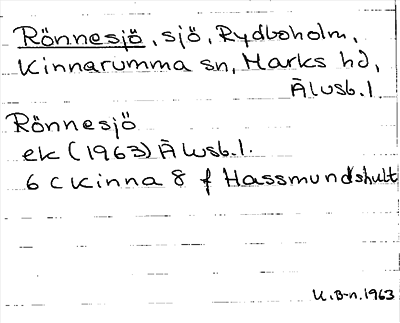 Rönnesjö, sjö, Rydboholm,
Kinnarumma sn, Marks hd,
Älvsb.l.
Rönnesjö
ek (1963) Älvsb.l.
6 c Kinna 8 f Hassmundshult
U.B-n.1963